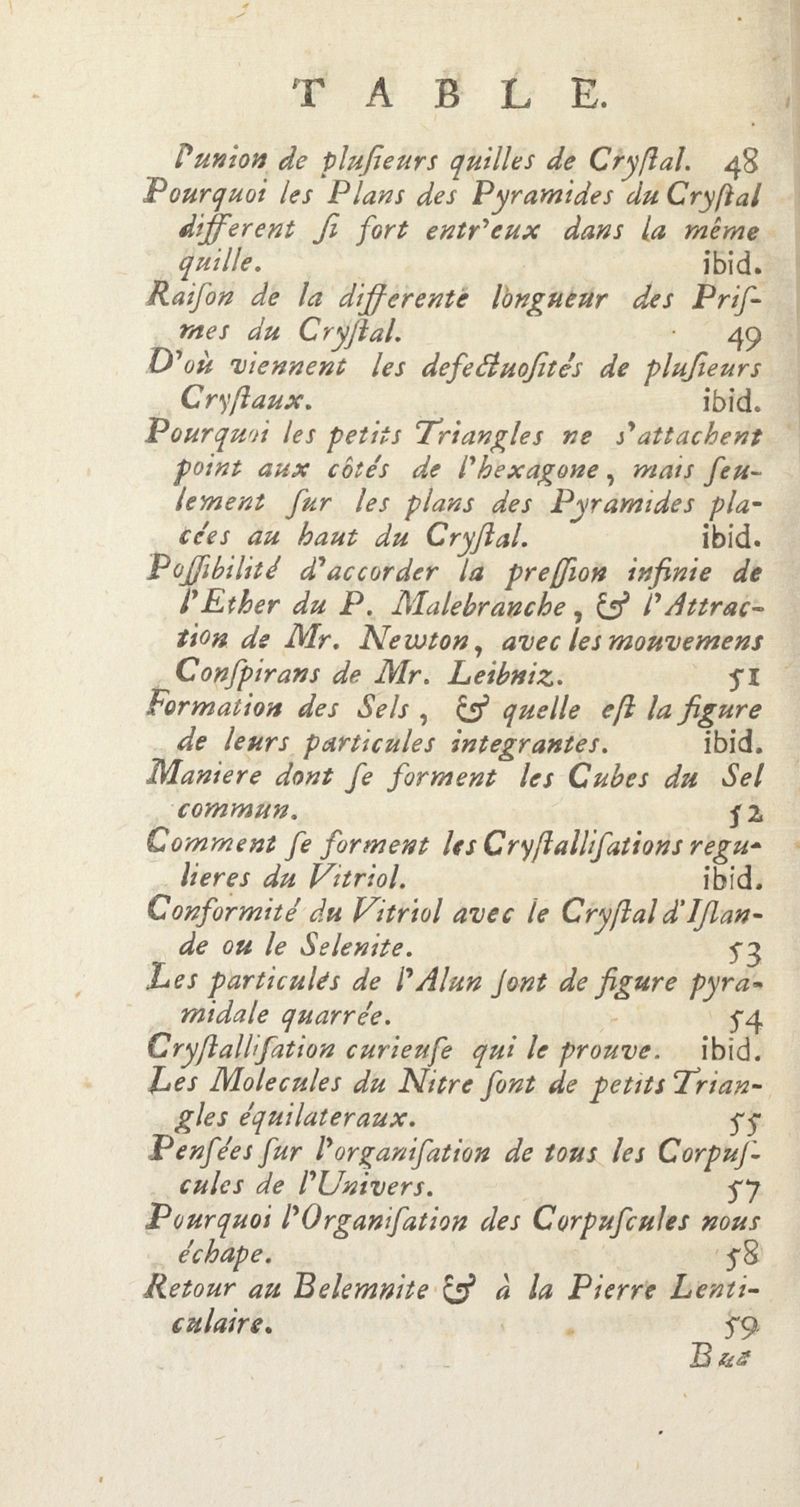 T A B L E.
l'union de pluſieurs quilles de Cryſtal. 48
Pourquoi les Plans des Pyramides du Cryſtal
different ſi fort entr'eux dans la même
quille. ibid.
Raiſon de la differente longueur des Priſ-
mes du Cryſtal. 49
D'où viennent les defectuoſités de pluſieurs
Cryſtaux. ibid.
Pourquoi les petits Triangles ne s'attachent
point aux côtés de l'hexagone, mais ſeu-
lement ſur les plans des Pyramides pla-
cées au haut du Cryſtal. ibid.
Poſſibilité d'accorder la preſſion infinie de
l'Ether du P. Malebranche, & l'Attrac-
tion de Mr. Newton, avec les mouvemens
Conſpirans de Mr. Leibniz. 51
Formation des Sels, & quelle eſt la figure
de leurs particules integrantes. ibid.
Maniere dont ſe forment les Cubes du Sel
commun. 52
Comment ſe forment les Cryſtalliſations regu-
lieres du Vitriol. ibid.
Conformité du Vitriol avec le Cryſtal d'Iſlan-
de ou le Selenite. 53
Les particulés de l'Alun ſont de figure pyra-
midale quarrée. 54
Cryſtalliſation curieuſe qui le prouve. ibid.
Les Molecules du Nitre ſont de petits Trian-
gles équilateraux. 55
Penſées ſur l'organiſation de tous les Corpuſ-
cules de l'Univers. 57
Pourquoi l'Organiſation des Corpuſcules nous
échape. 58
Retour au Belemnite & à la Pierre Lenti-
culaire. 59
But